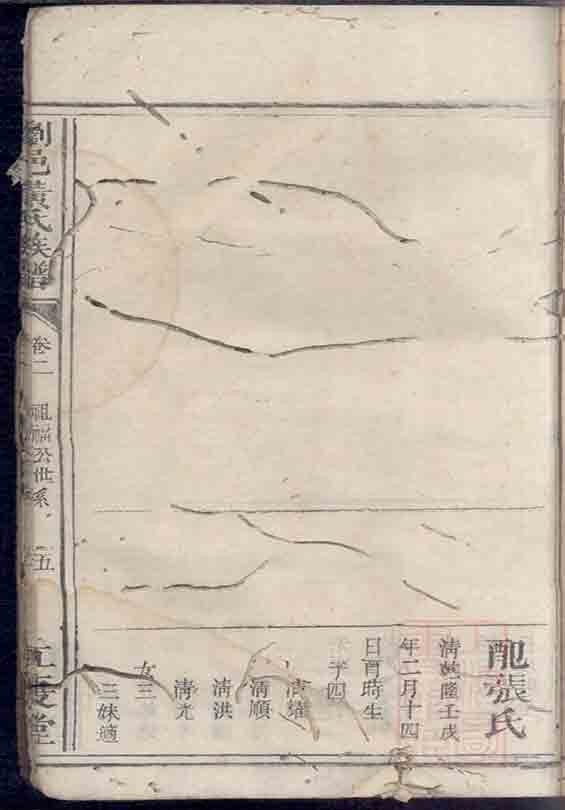 配張氏
清乾隆壬戌
年二月十四
日酉時生
子四
清耀
清順
清洪
清尤
女三
三妹適
劉邑黃氏族譜
卷二
祖福公世系
五
江夏堂